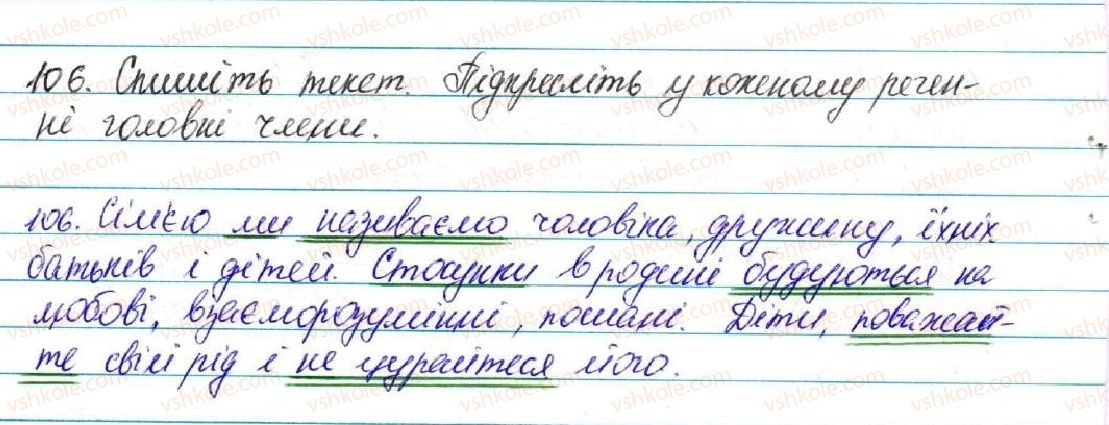 106. Спишіть текст. Підкресліть у кожному речен-
ні головні члени.
106. Сім'єю ми називаємо чоловіка, дружину, їхніх
батьків і дітей. Стосунки в родині будуються на
любові, взаєморозумінні, пошані. Діти, поважай-
те свій рід і не цурайтеся його.